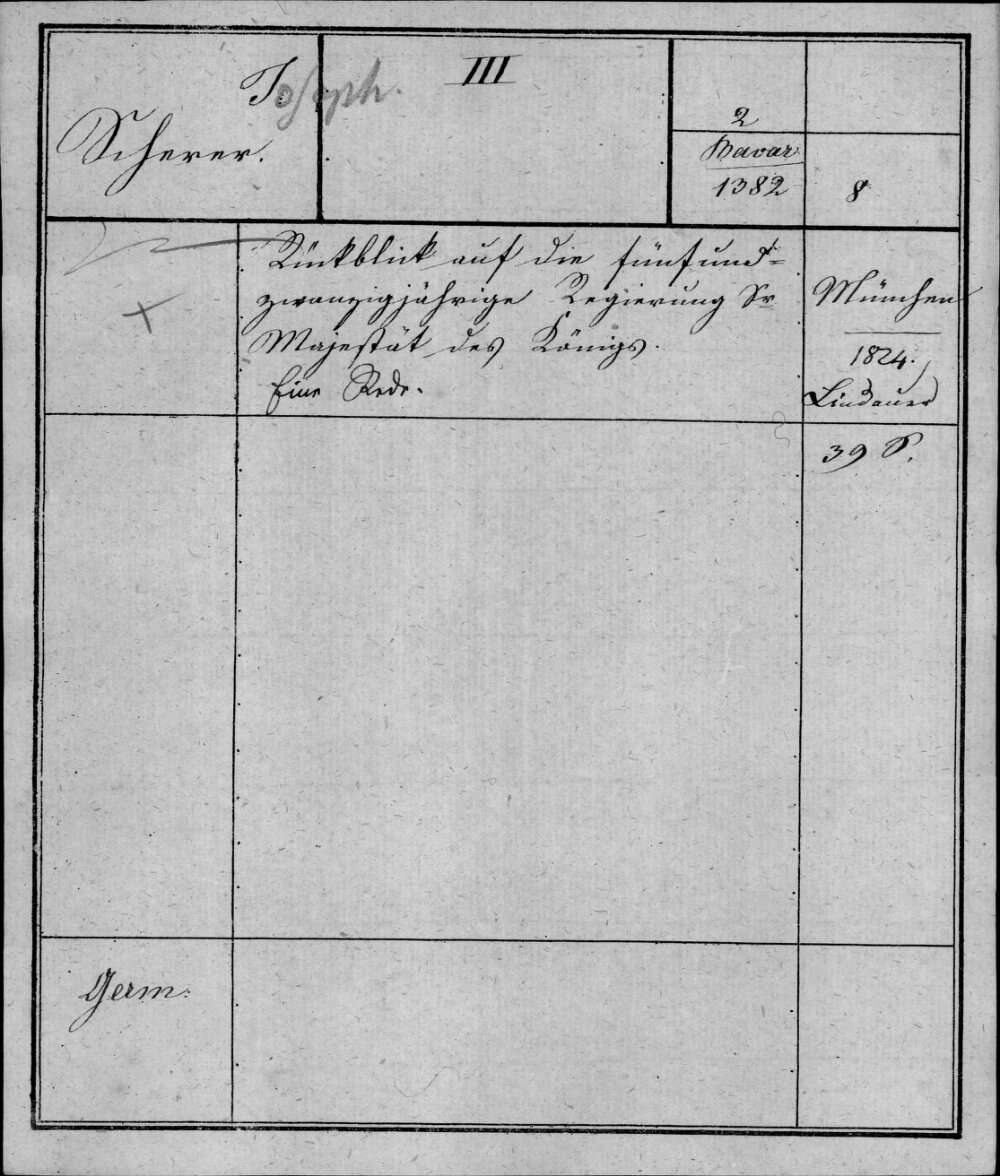 Joseph.
Scherer.
III
2
Bavar.
1382
8
Rückblick auf die fünfund=
zwanzigjährige Regierung Sr
Majestät des Königs.
Eine Rede.
München
1824.
Lindauer
39 S.
Germ.